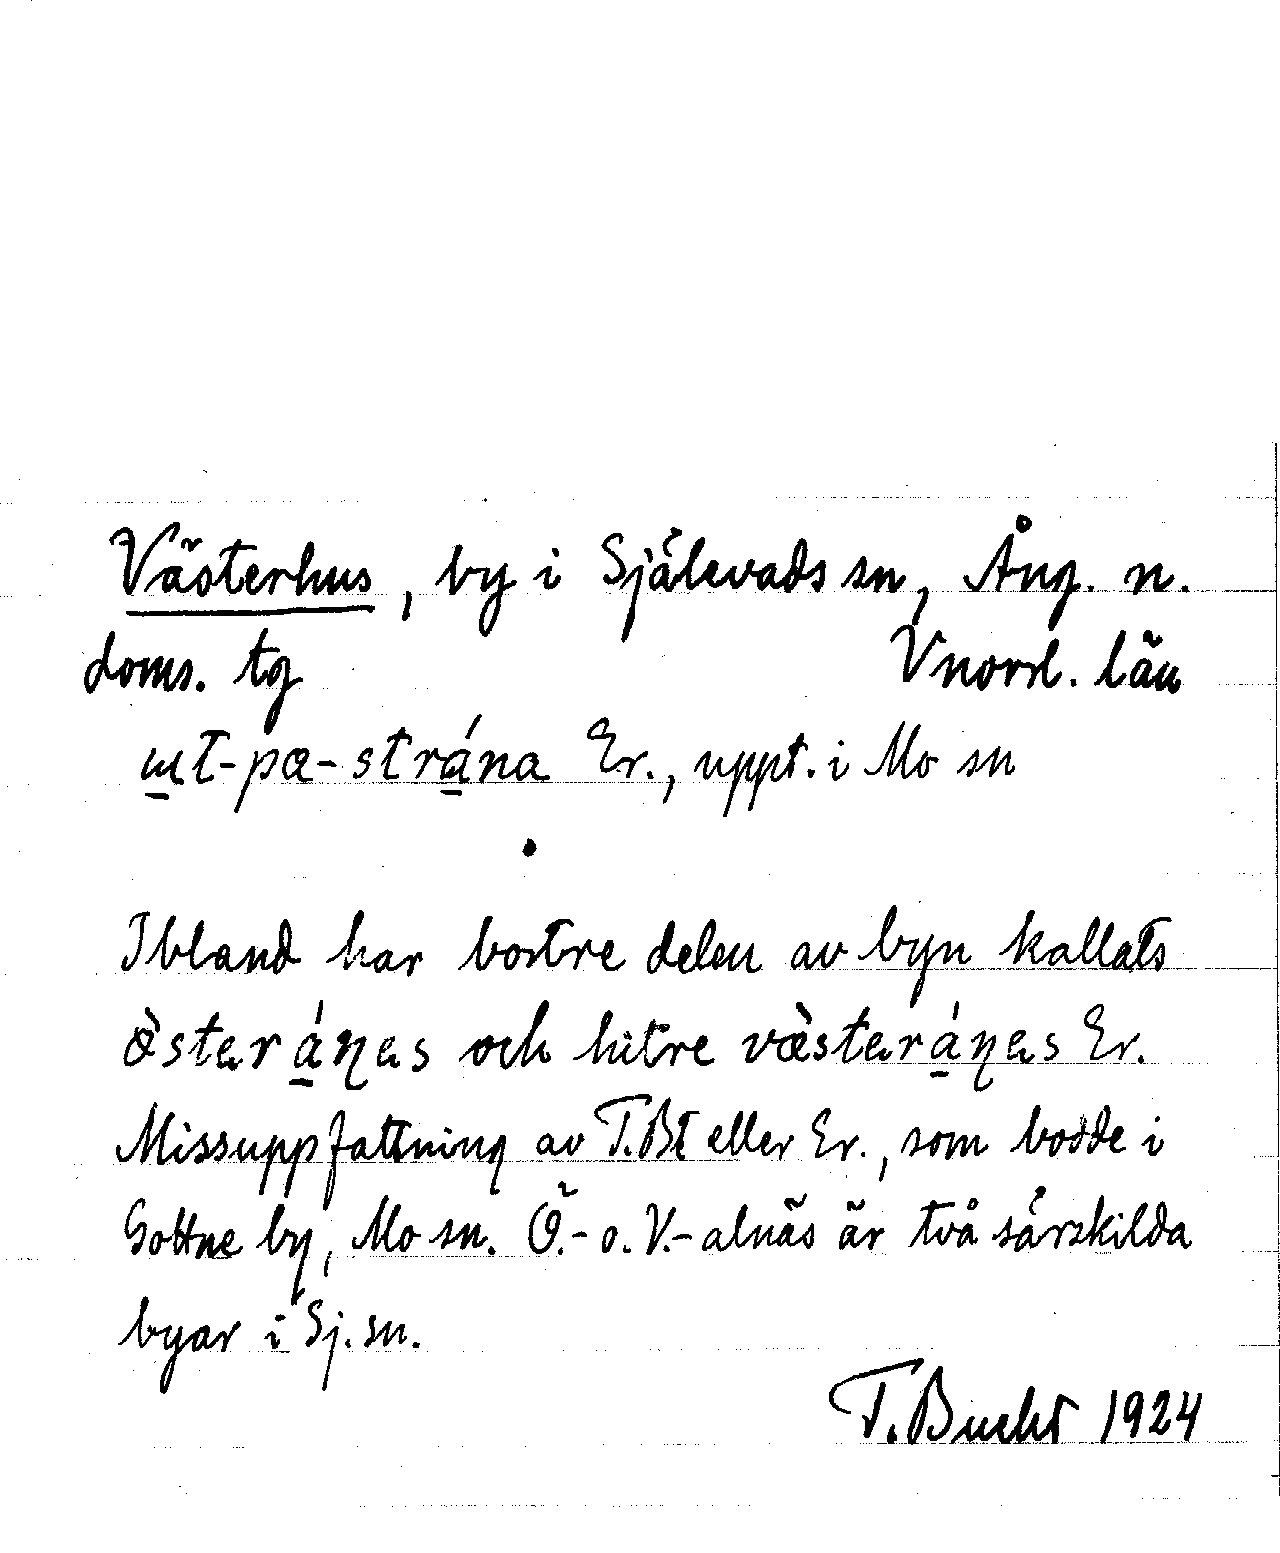 Västerhus, by i Själevads sn, Ång. n.
doms. tg Vnorrl. län
ɯt-pæ-strána Er., uppt. i Mo sn
Ibland har bortre delen av byn kallats
och hitre Er.
Missuppfattning av T.Bt eller Er., som bodde i
Gottne by, Mo sn. Ö.- o. V.-alnäs är två särskilda
byar i Sj. sn.
T. Bucht 1924